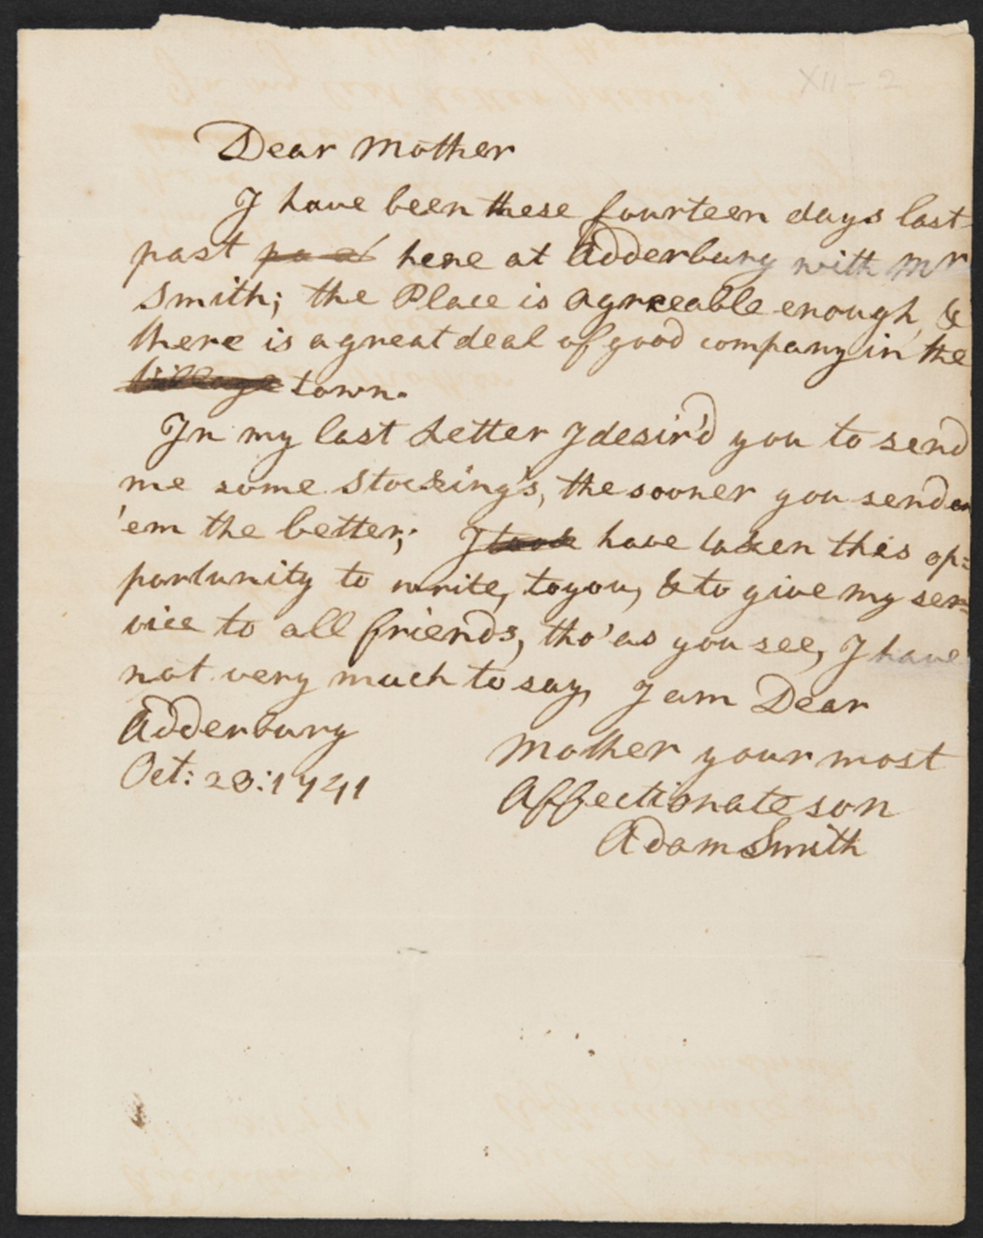 XII-2
Dear Mother
I have been these fourteen days last
past here at Adderbury with Mr
Smith; the Place is agreeable enough, &
there is a great deal of good company in the
Village town.
In my last Letter I desir'd you to send
me some Stocking's, the sooner you send
'em the better; I took have taken this op=
portunity to write, to you, & to give my ser=
vice to all friends, tho' as you see, I have
not very much to say, I am Dear
Mother your most
Affectionate son
Adam Smith
Adderbury
Oct: 23: 1741